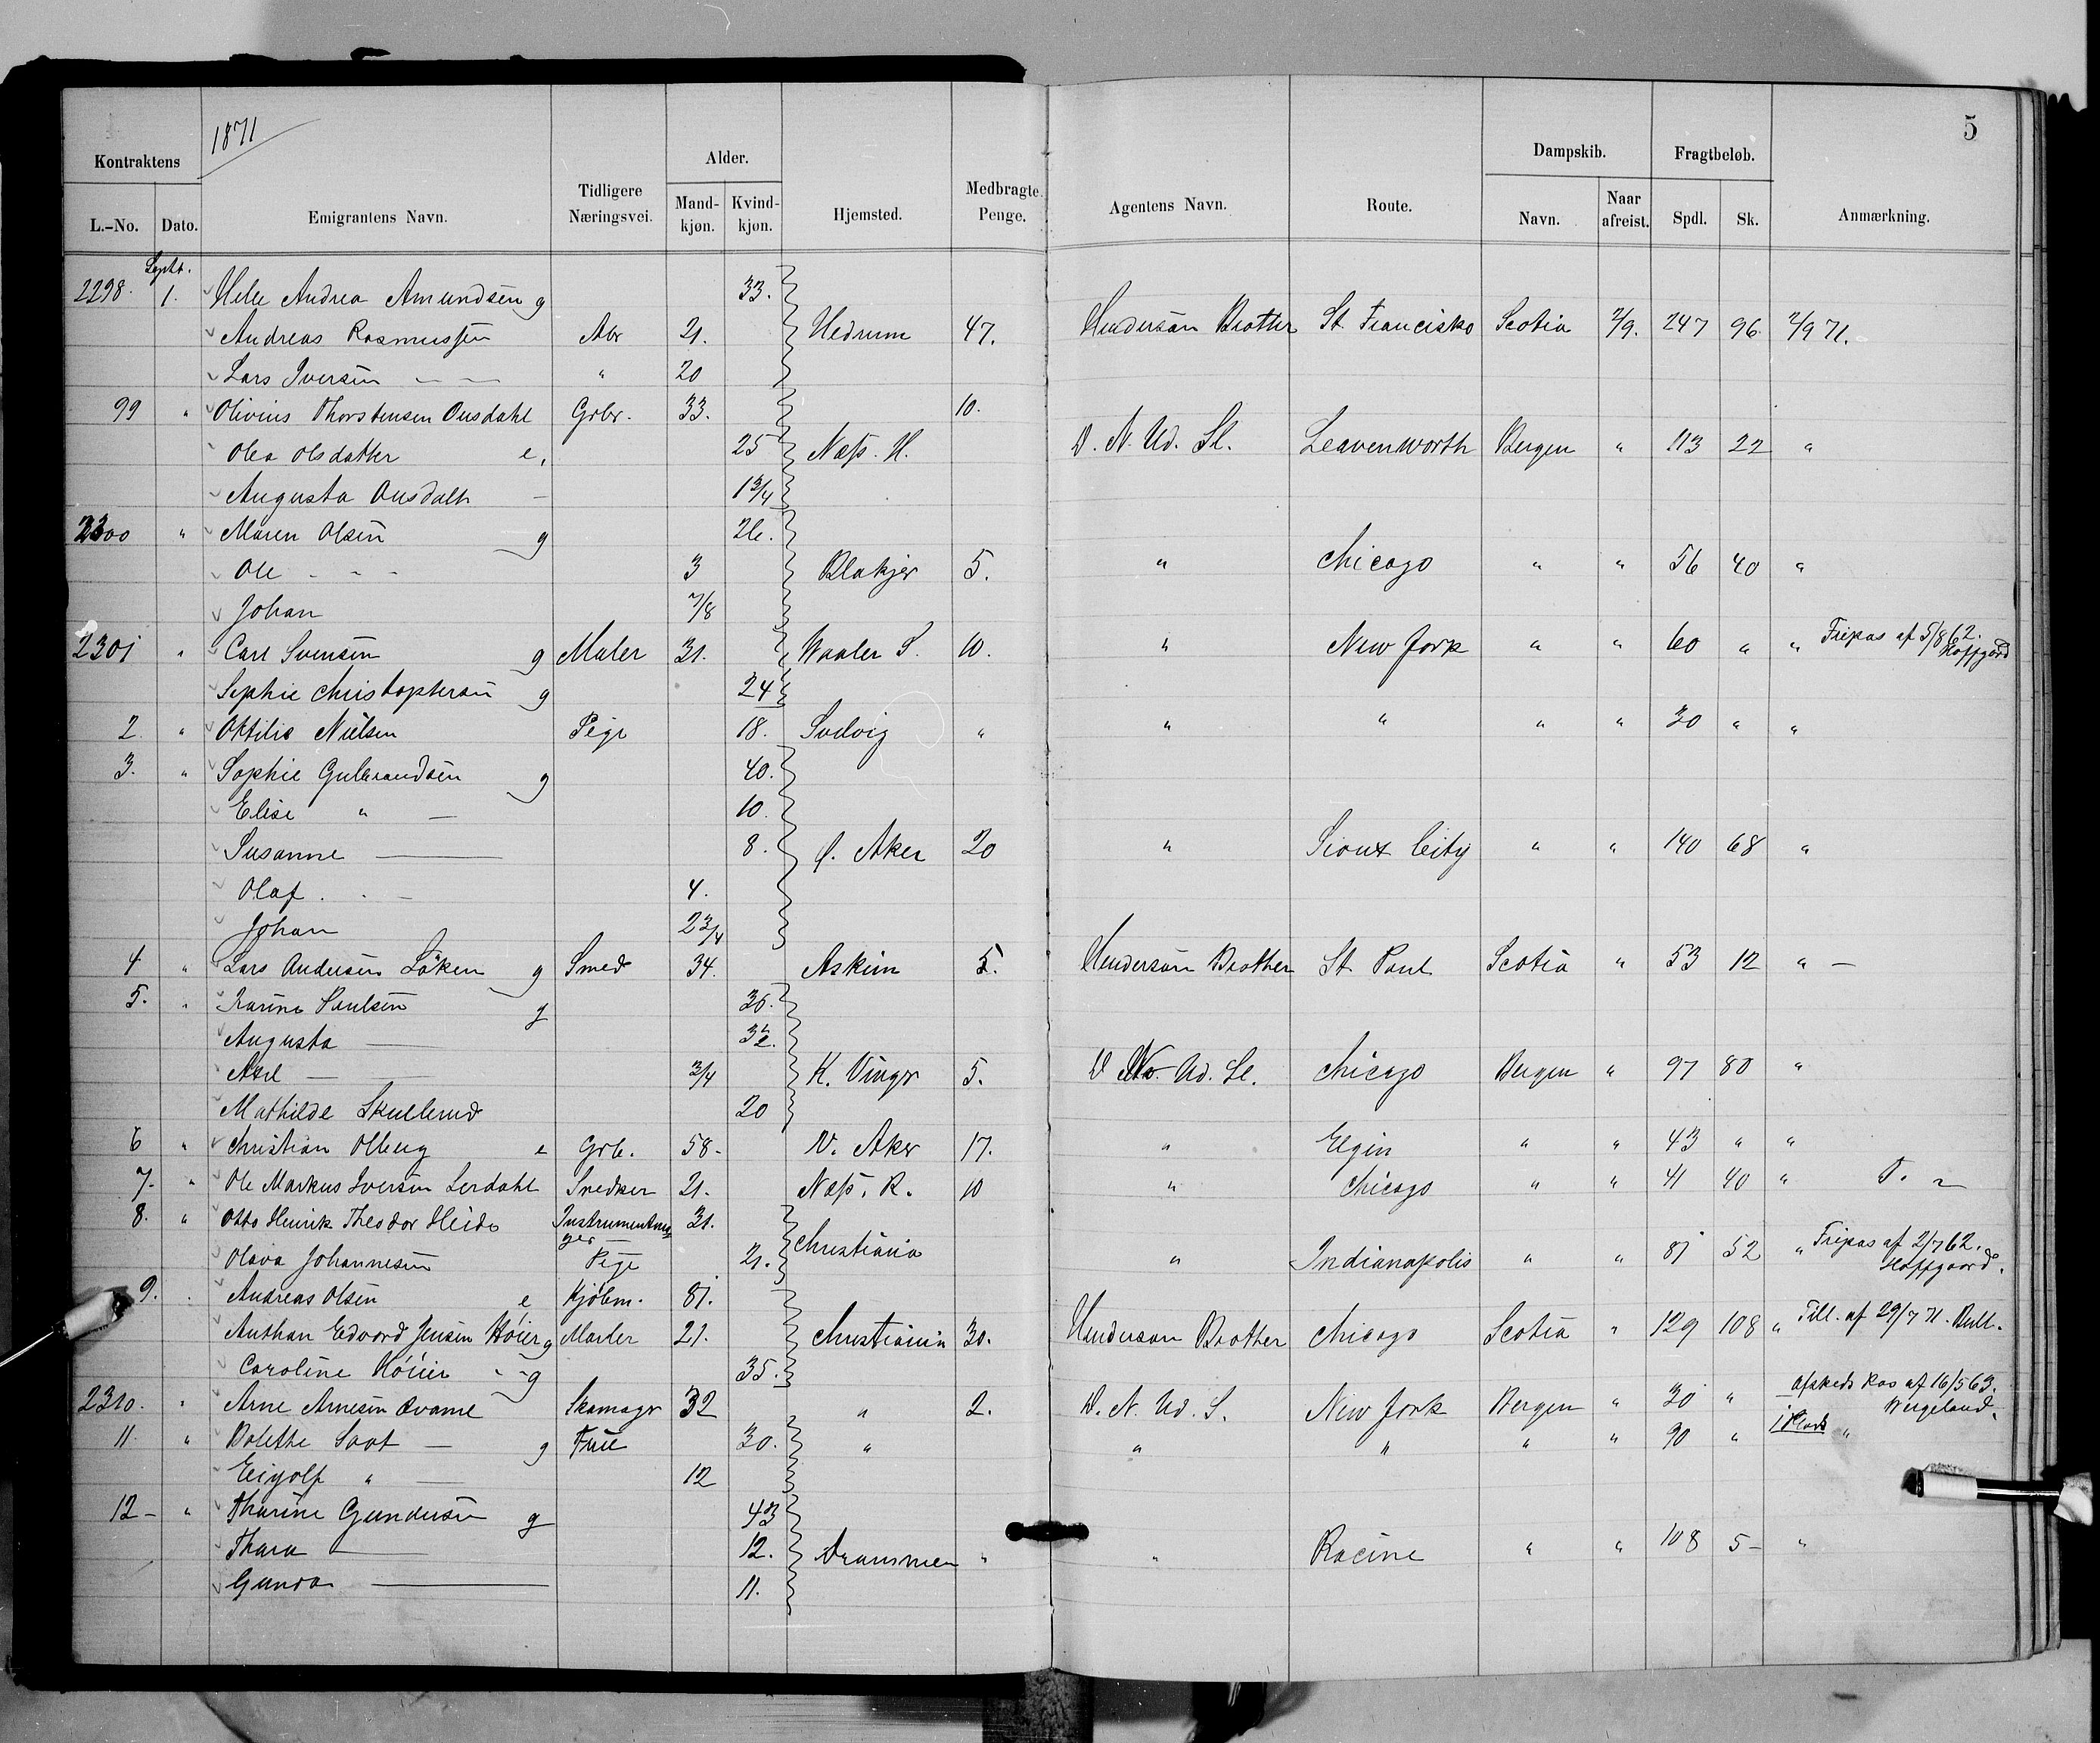 5
1871
Kontraktens Alder. Dampskib. Fragtbeløb.
L.-No. Dato. Emigrantens Navn. Tidligere Næringsvei. Mandkjøn. Kvindkjøn. Hjemsted. Medbragte Penge. Agentens Navn. Route. Navn. Naar afreist. Spdl. Sk. Anmærkning.
Septb.
2298. 1. Andrea Amundsen g 33.
Andreas Rasmussen Abr 21. Hedrum 47. Henderson Brother St. Francisko Scotia 2/9. 247 96 2/9 71.
Lars Iversen — — " 20
99 " Olivius Thorstensen Ousdahl Grbr. 33. 10.
Olea Olsdatter e, 25 Næss. H. D. N. Ud. Sl. Leavenworth Bergen " 113 22 "
Augusta Ousdahl — 1 3/4
2300 " Maren Olsen g 26.
Ole - - - 3 Blakjer 5. " Chicago " " 56 40 "
Johan 7/8
2301 " Carl Svensen g Maler 31. Waaler S. 10. " New York " " 60 " " Fripas af 5/8 62.
Sophie Christophersen g 24
2. " Ottilie Nielsen Pige 18. Svelvig " " " " " 30 " "
3. " Sophie Gulbrandsen g 40.
Elise " — 10.
Susanne — 8. Ø. Aker 20 " Sioux City " " 140 68 "
Olaf . . - 4.
Johan 2 3/4
4 " Lars Andersen Löken g Smed 34. Askim 5. Henderson Brother St. Paul Scotia " 53 12 " —
5. " Karine Paulsen g
Augusta —
Axel — 3/4 K. Vinger 5. D. N. Ud. Sl. Chicago Bergen " 97 80 "
Mathilde Skullerud 20
6 " Christian Olberg e Grb. 58. V. Aker 17. " Elgin " " 43 " "
7. " Ole Markus Iversen Lerdahl Snedker 21. Næss. R. 10 " Chicago " " 41 40 "
8. " Otto Henrik Theodor Heide 31.
Olava Johannesen Pige 21. Christiania " Indianapolis " " 81 52 " Fripas af 2/7 62.
9. " Andreas Olsen e Kjøbm. 81.
Anthon Edvard Jensen Höier g Maler 21. Christiania 30. Henderson Brother Chicago Scotia " 129 108 " Till. af 29/7 71.
Caroline Höier - - g 35.
2310. " Arne Arnesen Qvame Skomagr 32 " 2. D. N. Ud. S. New York Bergen " 30 " Afskeds Pas af 16/5 63.
Wergeland.
11 " Bolethe Saat — g Frue 30. " " " " " 90 " "
Eigolf " — 12
12 — " Tharine Gundersen g 43
Thara — 12. Drammen " " Racine " " 108 5 — "
Gunda — 11.